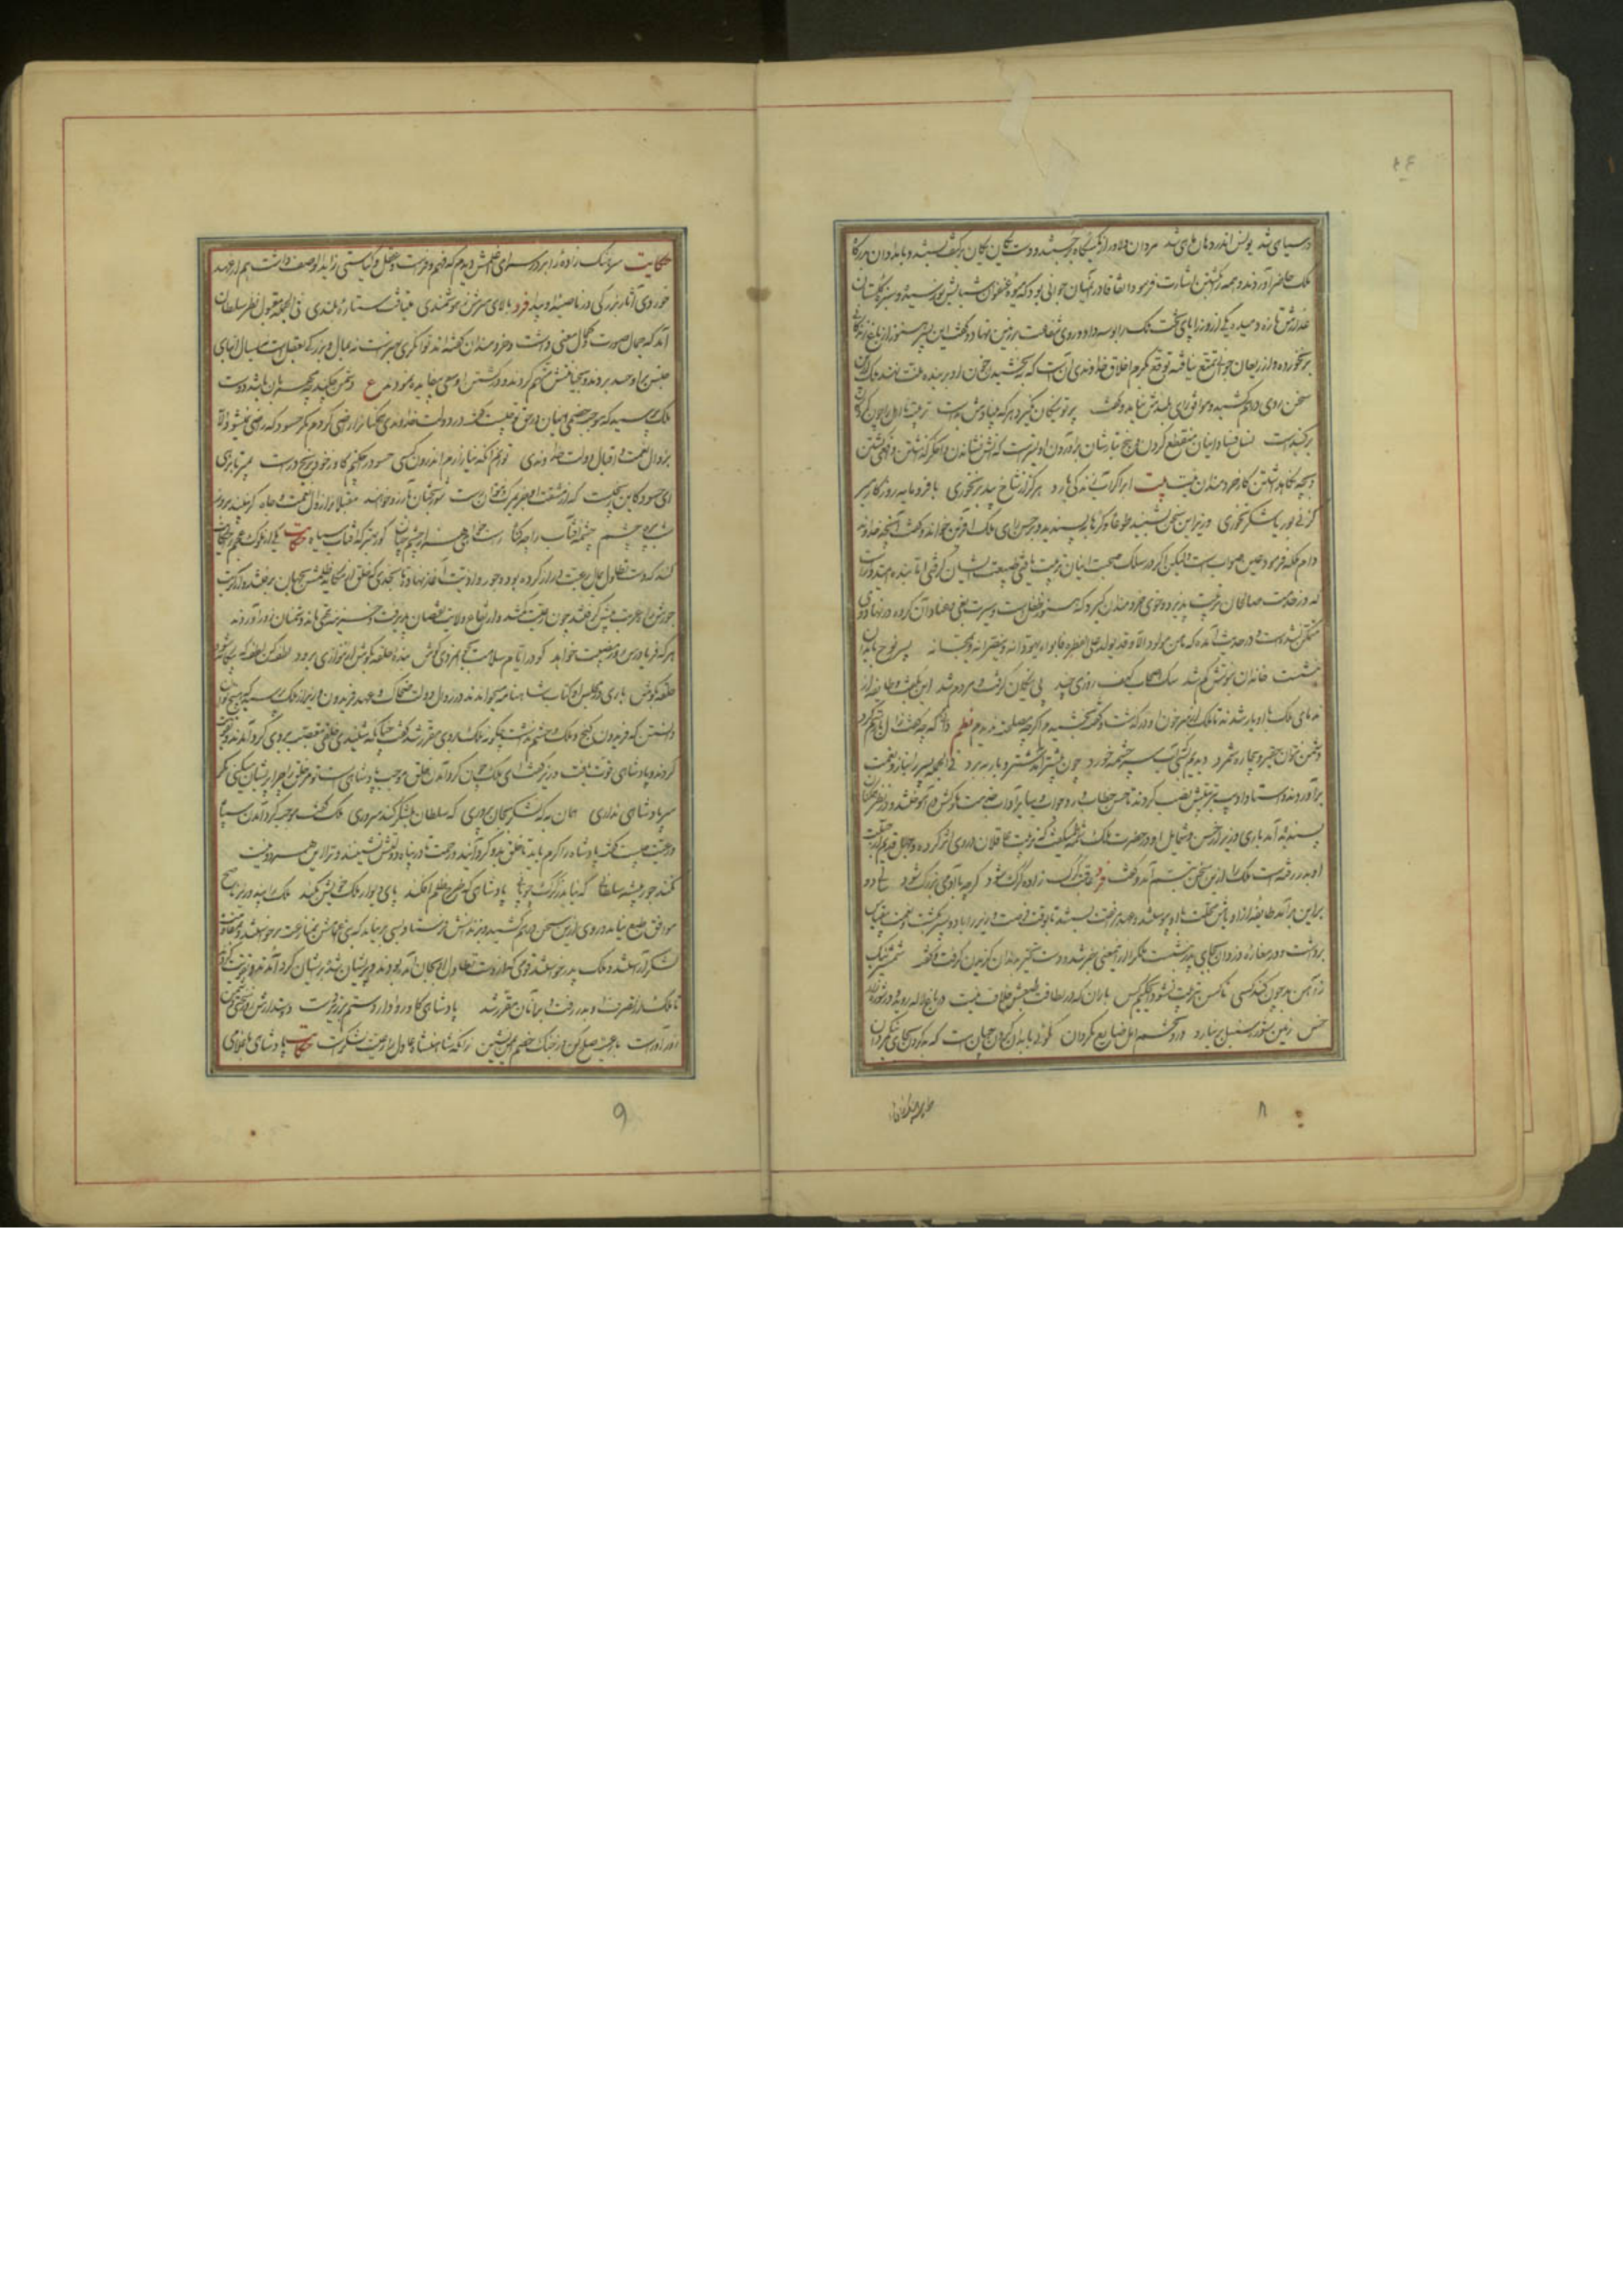 در سیاهی شد یونس اندر دهان ماهی شد مردان دلاور از کمینگاه بجستند و دست یکان یکان بر کتف بستند و بامدادان بدرگاه
ملک حاضر آوردند و همه را کشتن اشارت فرمود اتفاقا در آن میان جوانی بود که میوه عنفوان شبابش نو رسیده و سبزه گلستان
عذارش تازه دمیده یکی از وزرا پای تخت ملک را بوسه داد و روی شفاعت بر زمین نهاد و گفت این پسر هنوز از باغ زندگانی
بر نخورده و از ریعان جوانی تمتع نیافته توقع بکرم اخلاق خداوندی آنست که ببخشیدن خون او بر بنده منت نهند ملک ازین
سخن روی درهم کشید و موافق رای بلندش نیامد و گفت پرتو نیکان نگیرد هر که بنیادش بدست تربیت نااهل را چون گردکان
بر گنبدست نسل فساد اینان منقطع کردن و بیخ تبارشان برآوردن اولیترست که آتش نشاندن و اخگر گذاشتن و افعی کشتن
و بچه نگاه داشتن کار خردمندان نیست بیت ابر اگر آب زندگی بارد هرگز از شاخ بید بر نخوری با فرومایه روزگار مبر
کز نی بوریا شکر نخوری وزیر این سخن بشنید طوعا و کرها بپسندید و بر حسن رای ملک آفرین خواند و گفت آنچه خداوند
دام ملکه فرمود عین صوابست ولیکن اگر در سلک صحبت اینان تربیت یافتی طبیعت ایشان گرفتی اما بنده امیدوارست
که در خدمت صالحان تربیت پذیرد و خوی خردمندان گیرد که هنوز طفل است و سیرت بغی و عناد آن گروه در نهاد وی
متمکن نشدست و در حدیث آمده که ما من مولود الا و قد یولد علی الفطره فابواه یهودانه و ینصرانه و یمجسانه پسر نوح با بدان
بنشست خاندان نبوتش گم شد سگ اصحاب کهف روزی چند پی نیکان گرفت و مردم شد این بگفت و طایفه از
ندمای ملک با او یار شدند تا ملک از سر خون او در گذشت و گفت بخشیدم اگر چه مصلحت ندیدم نظم دانی که چه گفت زال با رستم گرد
دشمن نتوان حقیر و بیچاره شمرد دیدیم بسی کآب سرچشمه خرد چون بیشتر آمد شتر و بار ببرد فی الجمله پسر را بناز و نعمت
برآوردند و استاد ادیب بتربیتش نصب کردند تا حسن خطاب و رد جواب و سایر آداب خدمت ملوکش در آموختند و در نظر همگنان
پسندیده آمد باری وزیر از حسن شمایل او در حضرت ملک شمه میگفت که تربیت عاقلان در وی اثر کرده و جهل قدیم از جبلت
او بدر رفته است ملک را ازین سخن تبسم آمد و گفت فرد عاقبت گرگ زاده گرگ شود گر چه با آدمی بزرگ شود سالی دو
برین برآمد طایفه از اوباش محلت بدو پیوستند و عهد مرافقت بستند تا بوقت فرصت وزیر را با دو پسر بکشت و نعمت بیقیاس
برداشت و در مغاره دزدان بجای پدر بنشست ملک را از این معنی خبر شد دست تحیر بدندان گزیدن گرفت و گفت شمشیر نیک
ز آهن بد چون کند کسی ناکس بتربیت نشود ای حکیم کس باران که در لطافت طبعش خلاف نیست در باغ لاله روید و در شوره زار
خس زمین شوره سنبل بر نیارد درو تخم امل ضایع مگردان نکوئی با بدان کردن چنان است که بد کردن بجای نیک مردان
۸
حکایت سرهنگ زاده را بر در سرای اغلمش دیدم که فهم و فراست و عقل و کیاستی زاید الوصف داشت هم از عهد
خوردی آثار بزرگی در ناصیه او پیدا فرد بالای سرش ز هوشمندی میتافت ستاره بلندی فی الجمله مقبول نظر سلطان
آمد که جمال صورت و کمال معنی داشت و خردمندان گفته اند توانگری بهنرست نه بمال و بزرگی بعقلست نه بسال ابنای
جنس بر او حسد بردند و بخیانتش متهم کردند و در کشتن او سعی بیفایده نمودند ع دشمن چکند چو مهربان باشد دوست
ملک پرسید که موجب خصمی اینان در حق تو چیست گفت در دولت خداوندی همگنانرا راضی کردم مگر حسود که راضی نمیشود الا
بزوال نعمت و اقبال دولت خداوندی توانم آنکه نیازارم اندرون کسی حسود را چکنم کاو ز خود برنج درست بمیر تا برهی
ای حسود کاین رنجیست که از مشقت او جز بمرگ نتوان رست شوربختان بآرزو خواهند مقبلانرا زوال نعمت و جاه گر نبیند بروز
شب پره چشم چشمه آفتاب را چه گناه راست خواهی هزار چشم چنان کور بهتر که آفتاب سیاه حکایت یکی از ملوک عجم را حکایت
کنند که دست تطاول بمال رعیت دراز کرده بود و جور و اذیت آغاز نهاده تا بجدی که خلق از مکاید ظلمش بجهان برفتند و از کربت
جورش راه غربت پیش گرفتند چون رعیت کم شد و ارتفاع ولایت نقصان پذیرفت و خزینه تهی ماند و دشمنان زور آوردند
هر که فریادرس روز مصیبت خواهد گو در ایام سلامت بجوانمردی کوش بنده حلقه بگوش ار ننوازی برود لطف کن لطف که بیگانه شود
حلقه بگوش باری در مجلس او کتاب شاهنامه میخواندند در زوال دولت ضحاک و عهد فریدون وزیر از ملک پرسید که هیچ توان
دانستن که فریدون گنج و ملک و حشم نداشت چگونه ملک بر وی مقرر شد گفت چنانکه شنیدی خلقی بتعصب بر وی گرد آمدند و تقویت
کردند و پادشاهی یافت وزیر گفت ای ملک چون گرد آمدن خلق موجب پادشاهی است تو مر خلق را چرا پریشان میکنی مگر
سر پادشاهی نداری همان به که لشکر بجان پروری که سلطان بلشکر کند سروری ملک گفت موجب گرد آمدن سپاه
و رعیت چیست گفت پادشاه را کرم باید تا خلق بدو گرد آیند و رحمت تا در پناه دولتش نشینند و ترا این هر دو نیست
نکند جور پیشه سلطانی که نیاید ز گرگ چوپانی پادشاهی که طرح ظلم افکند پای دیوار ملک خویش بکند ملک را پند وزیر ناصح
موافق طبع نیامد و روی ازین سخن درهم کشید و بزندانش فرستاد بسی بر نیامد که بنی عمانش بمنازعت برخواستند و بمقاومت
لشکر آراستند و ملک پدر خواستند قومی که از دست تطاول او بجان آمده بودند و پریشان شده بر ایشان گرد آمدند و تقویت کردند
تا ملک از تصرف او بدر رفت و بر آنان مقرر شد پادشاهی کاو روا دارد ستم بر زیردست دوستدارش روز سختی دشمن
زورآورست با رعیت صلح کن وز جنگ خصم ایمن نشین زانکه شاهنشاه عادل را رعیت لشکرست حکایت پادشاهی با غلامی
۹